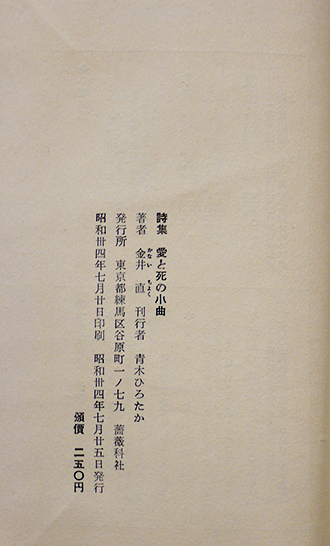 詩集 愛と死の小曲
著者 金井 直 刊行者 青木ひろたか
かない ちよく
発行所 東京都練馬区谷原町一ノ七九 薔薇科社
昭和卅四年七月廿日印刷 昭和卅四年七月廿五日発行
頒價 二五〇円